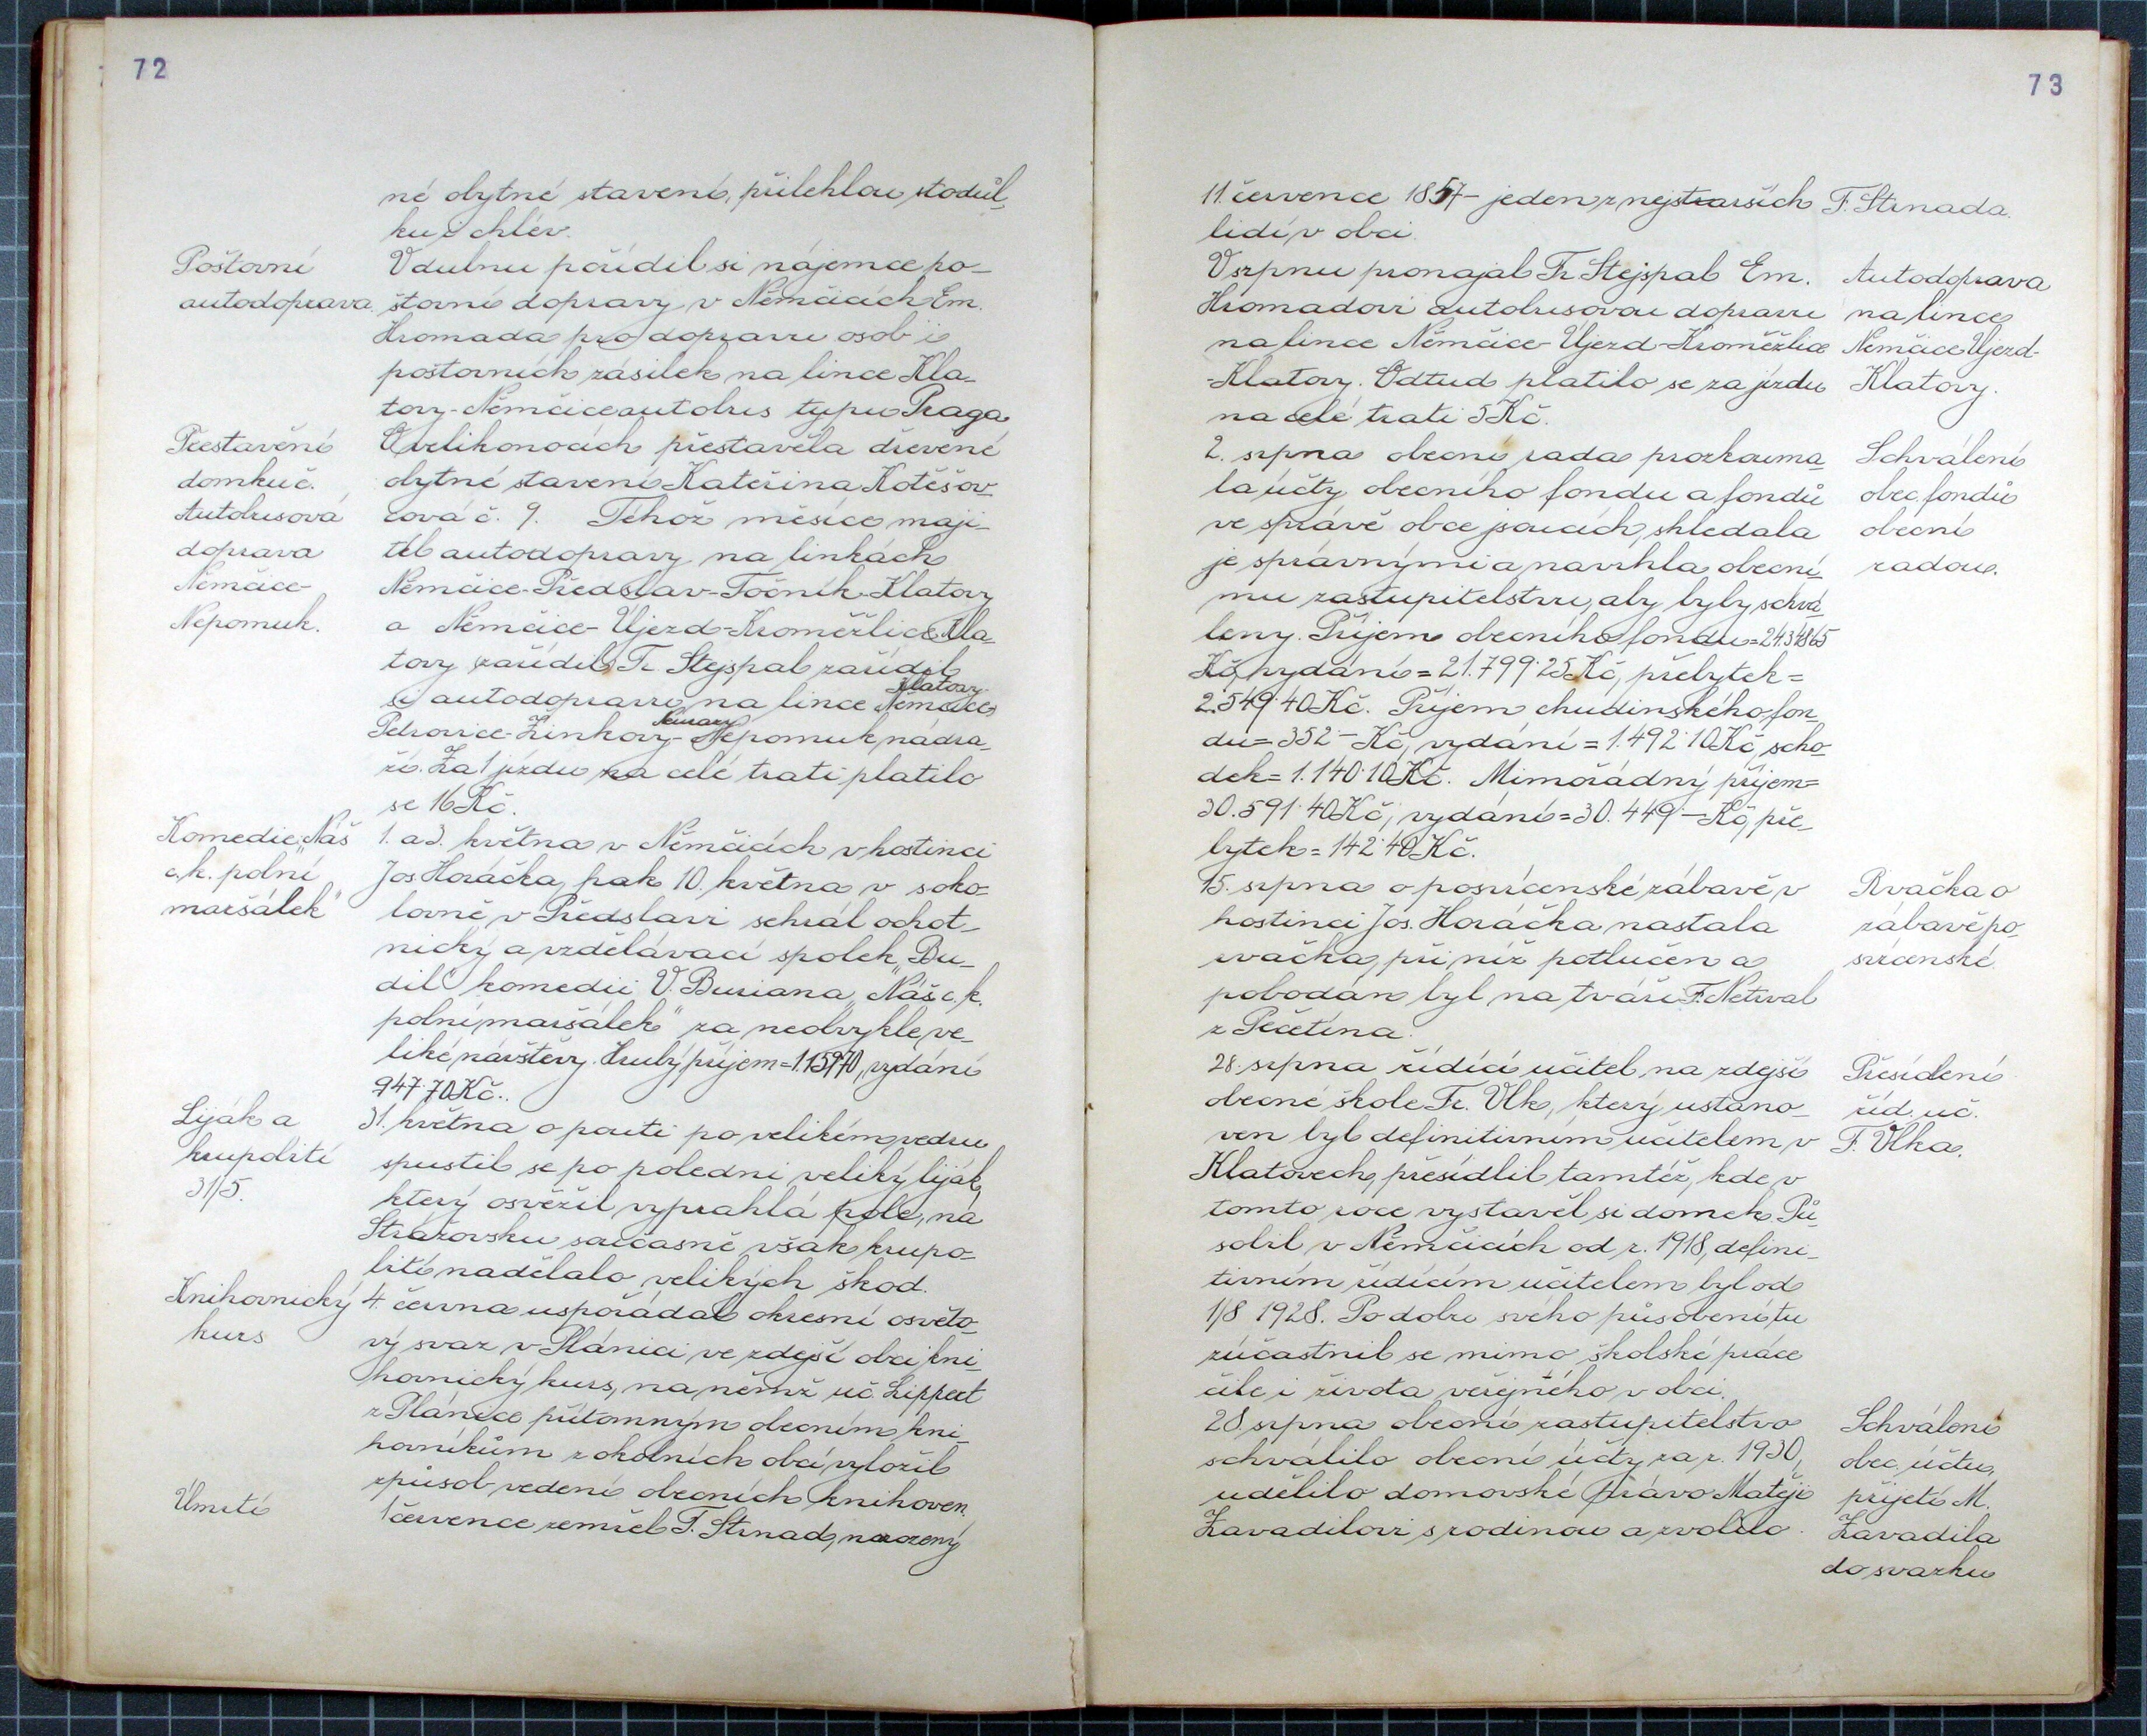 72
né obytné stavení, přilehlou stodůl-
ku i chlév.
Poštovní
autodoprava
V dubnu pořídil si nájemce po-
štovní dopravy v Němčicích Em.
Hromada pro dopravu osob i
poštovních zásilek na lince Kla-
tovy-Němčice autobus typu Praga
Přestavění
domku č.
O velikonocích přestavěla dřevené
obytné stavení Kateřina Kotěšov-
cová č. 9. Téhož měsíce maji-
Autobusová
doprava
Němčice-
Nepomuk.
tel autodopravy na linkách
Němčice-Předslav-Točník-Klatovy
a Němčice-Újezd-Kroměždice-Kla-
tovy zařídil Fr. Stejspal zařídil
si autodopravu na lince Klatovy Němčice
Petrovice-Žinkovy-Neurazy-Nepomuk, nádra-
ží. Za 1 jízdu na celé trati platilo
se 16 Kč.
Komedie „Náš
c. k. polní
maršálek"
1. a 3. května v Němčicích v hostinci
Jos. Horáčka, pak 10. května v soko-
lovně v Předslavi sehrál ochot-
nický a vzdělávací spolek „Bu-
dil" komedii V. Buriana „Náš c. k.
polní maršálek" za neobvykle ve-
liké návštěvy. Hrubý příjem = 1.159·70, vydání
947·70 Kč.
Liják a
krupobití
31/5.
31. května o pouti po velikém vedru
spustil se po poledni veliký liják,
který osvěžil vyprahlá pole, na
Strážovsku současně však krupo-
bití nadělalo velikých škod.
Knihovnický
kurs
4. června uspořádal okresní osvěto-
vý svaz v Plánici ve zdejší obci kni-
hovnický kurs, na němž uč. Lippert
z Plánice přítomným obecním kni-
hovníkům z okolních obcí vyložil
způsob vedení obecních knihoven.
Úmrtí
1 července zemřel F. Strnad, narozený
73
11. července 1857 - jeden z nejstarších
lidí v obci.
F. Strnada.
V srpnu pronajal Fr. Stejspal Em.
Hromadovi autobusovou dopravu
na lince Němčice-Újezd-Kroměždice
-Klatovy. Odtud platilo se za jízdu
na celé trati 5 Kč.
Autodoprava
na lince
Němčice Újezd-
Klatovy.
2. srpna obecní rada prozkouma-
la účty obecního fondu a fondů
ve správě obce jsoucích, shledala
je správnými a navrhla obecní-
mu zastupitelstvu, aby byly schvá-
leny. Příjem obecního fondu = 24.348·65
Kč, vydání = 21.799·25 Kč, přebytek =
2.549·40 Kč. Příjem chudinského fon-
du = 352·- Kč, vydání = 1.492·10 Kč, scho-
dek = 1.140·10 Kč. Mimořádný příjem =
30.591·40 Kč, vydání = 30.449·- Kč, pře-
bytek = 142·40 Kč.
Schválení
obec. fondů
obecní
radou.
15. srpna o posvícenské zábavě v
hostinci Jos. Horáčka nastala
rvačka, při níž potlučen a
pobodán byl na tváři F. Netrval
z Pečetína.
Rvačka o
zábavě po-
svícenské.
28. srpna řídící učitel na zdejší
obecné škole Fr. Vlk, který ustano-
ven byl definitivním učitelem v
Klatovech, přesídlil tamtéž, kde v
tomto roce vystavěl si domek. Pů-
sobil v Němčicích od r. 1918, defini-
tivním řídícím učitelem byl od
1/8 1928. Po dobu svého působení tu
zúčastnil se mimo školské práce
čile i života veřejného v obci.
Přesídlení
říd. uč.
F. Vlka.
28. srpna obecní zastupitelstvo
schválilo obecní účty za r. 1930,
udělilo domovské právo Matěji
Zavadilovi s rodinou a zvolilo
Schválení
obec. účtu,
přijetí M.
Zavadila
do svazku